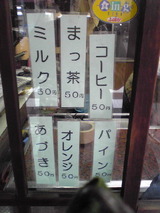 コーヒー
50円
まっ茶
50円
ミルク
50円
パイン
50円
オレンジ
50円
あづき
50円